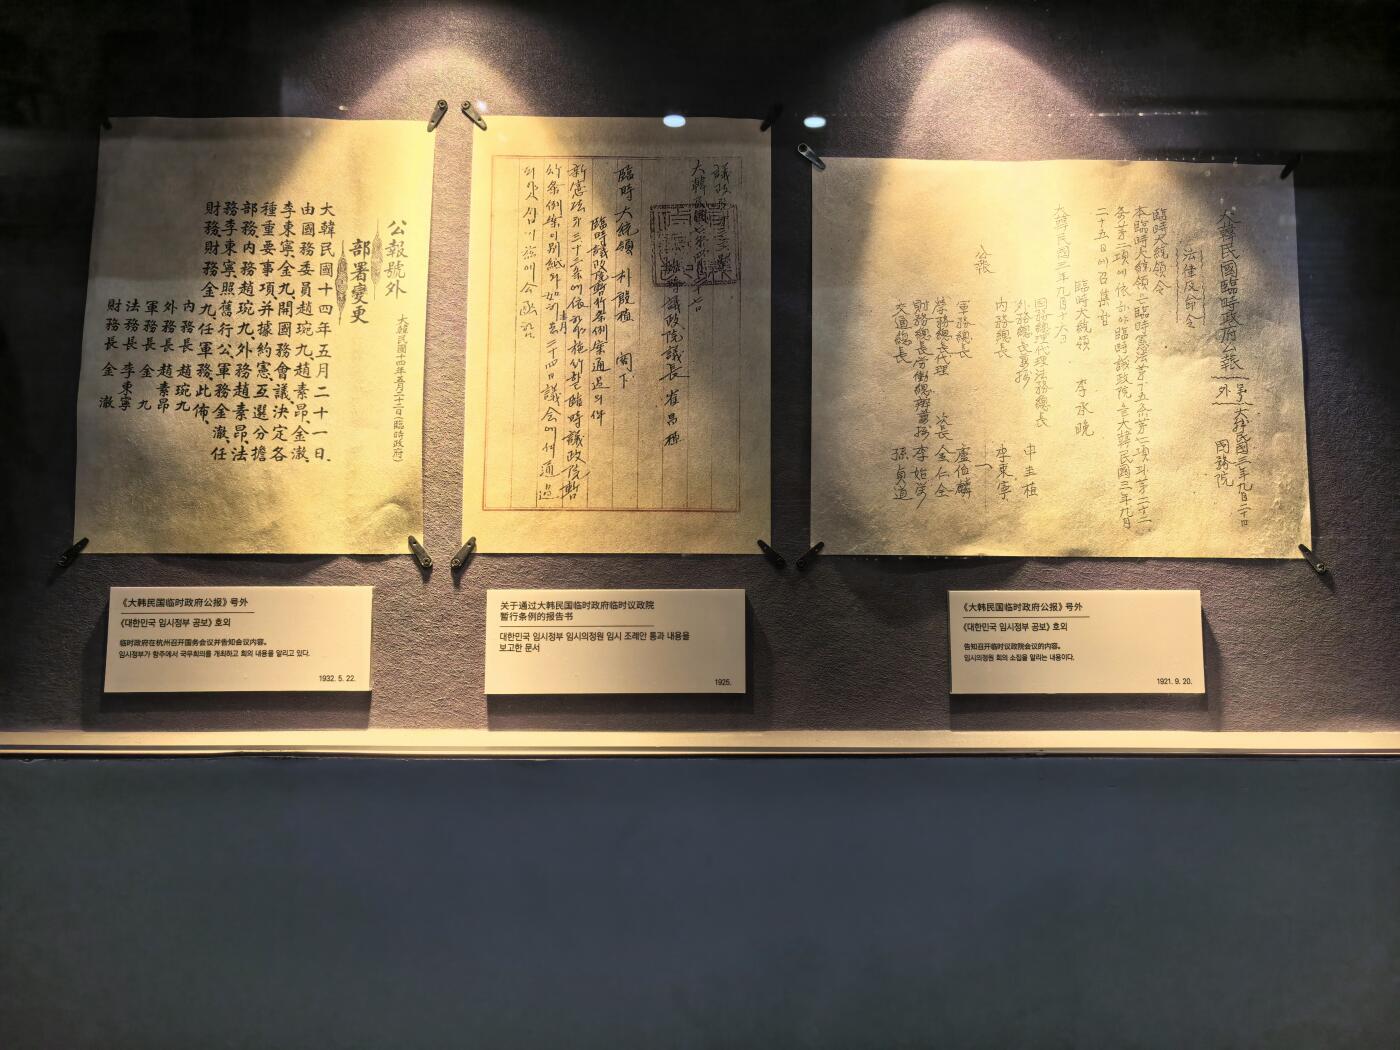 公報號外
大韓民國十四年五月二十二日(臨時政府)
部署變更
大韓民國十四年五月二十一日、
由國務委員趙琬九、趙素昂、金澈、
李東寧、金九開國務會議、決定各
種重要事項、并據約憲、互選分擔
部務、內務趙琬九、外務趙素昂、法
務李東寧、照舊行公、軍務金澈、任
財務、財務金九任軍務、此佈、
內務長 趙琬九
外務長 趙素昂
軍務長 金九
法務長 李東寧
財務長 金澈
臨時議政院議長 崔昌植
臨時大統領 朴殷植 閣下
臨時議政院暫行條例案通過의件
大韓民國臨時政府公報
號外 大韓民國三年九月二十日
國務院
法律及命令
臨時大統領令
二十五日에召集함
大韓民國三年九月十六日
臨時大統領 李承晩
國務總理代理法務總長 申圭植
內務總長 李東寧
軍務總長 盧伯麟
學務總長代理 次長 金仁全
交通總長 孫貞道
公報
《大韩民国临时政府公报》号外
《대한민국 임시정부 공보》 호외
临时政府在杭州召开国务会议并告知会议内容。
임시정부가 항주에서 국무회의를 개최하고 회의 내용을 알리고 있다.
1932. 5. 22.
关于通过大韩民国临时政府临时议政院
暂行条例的报告书
대한민국 임시정부 임시의정원 임시 조례안 통과 내용을
보고한 문서
1925.
《大韩民国临时政府公报》号外
《대한민국 임시정부 공보》 호외
告知召开临时议政院会议的内容。
임시의정원 회의 소집을 알리는 내용이다.
1921. 9. 20.